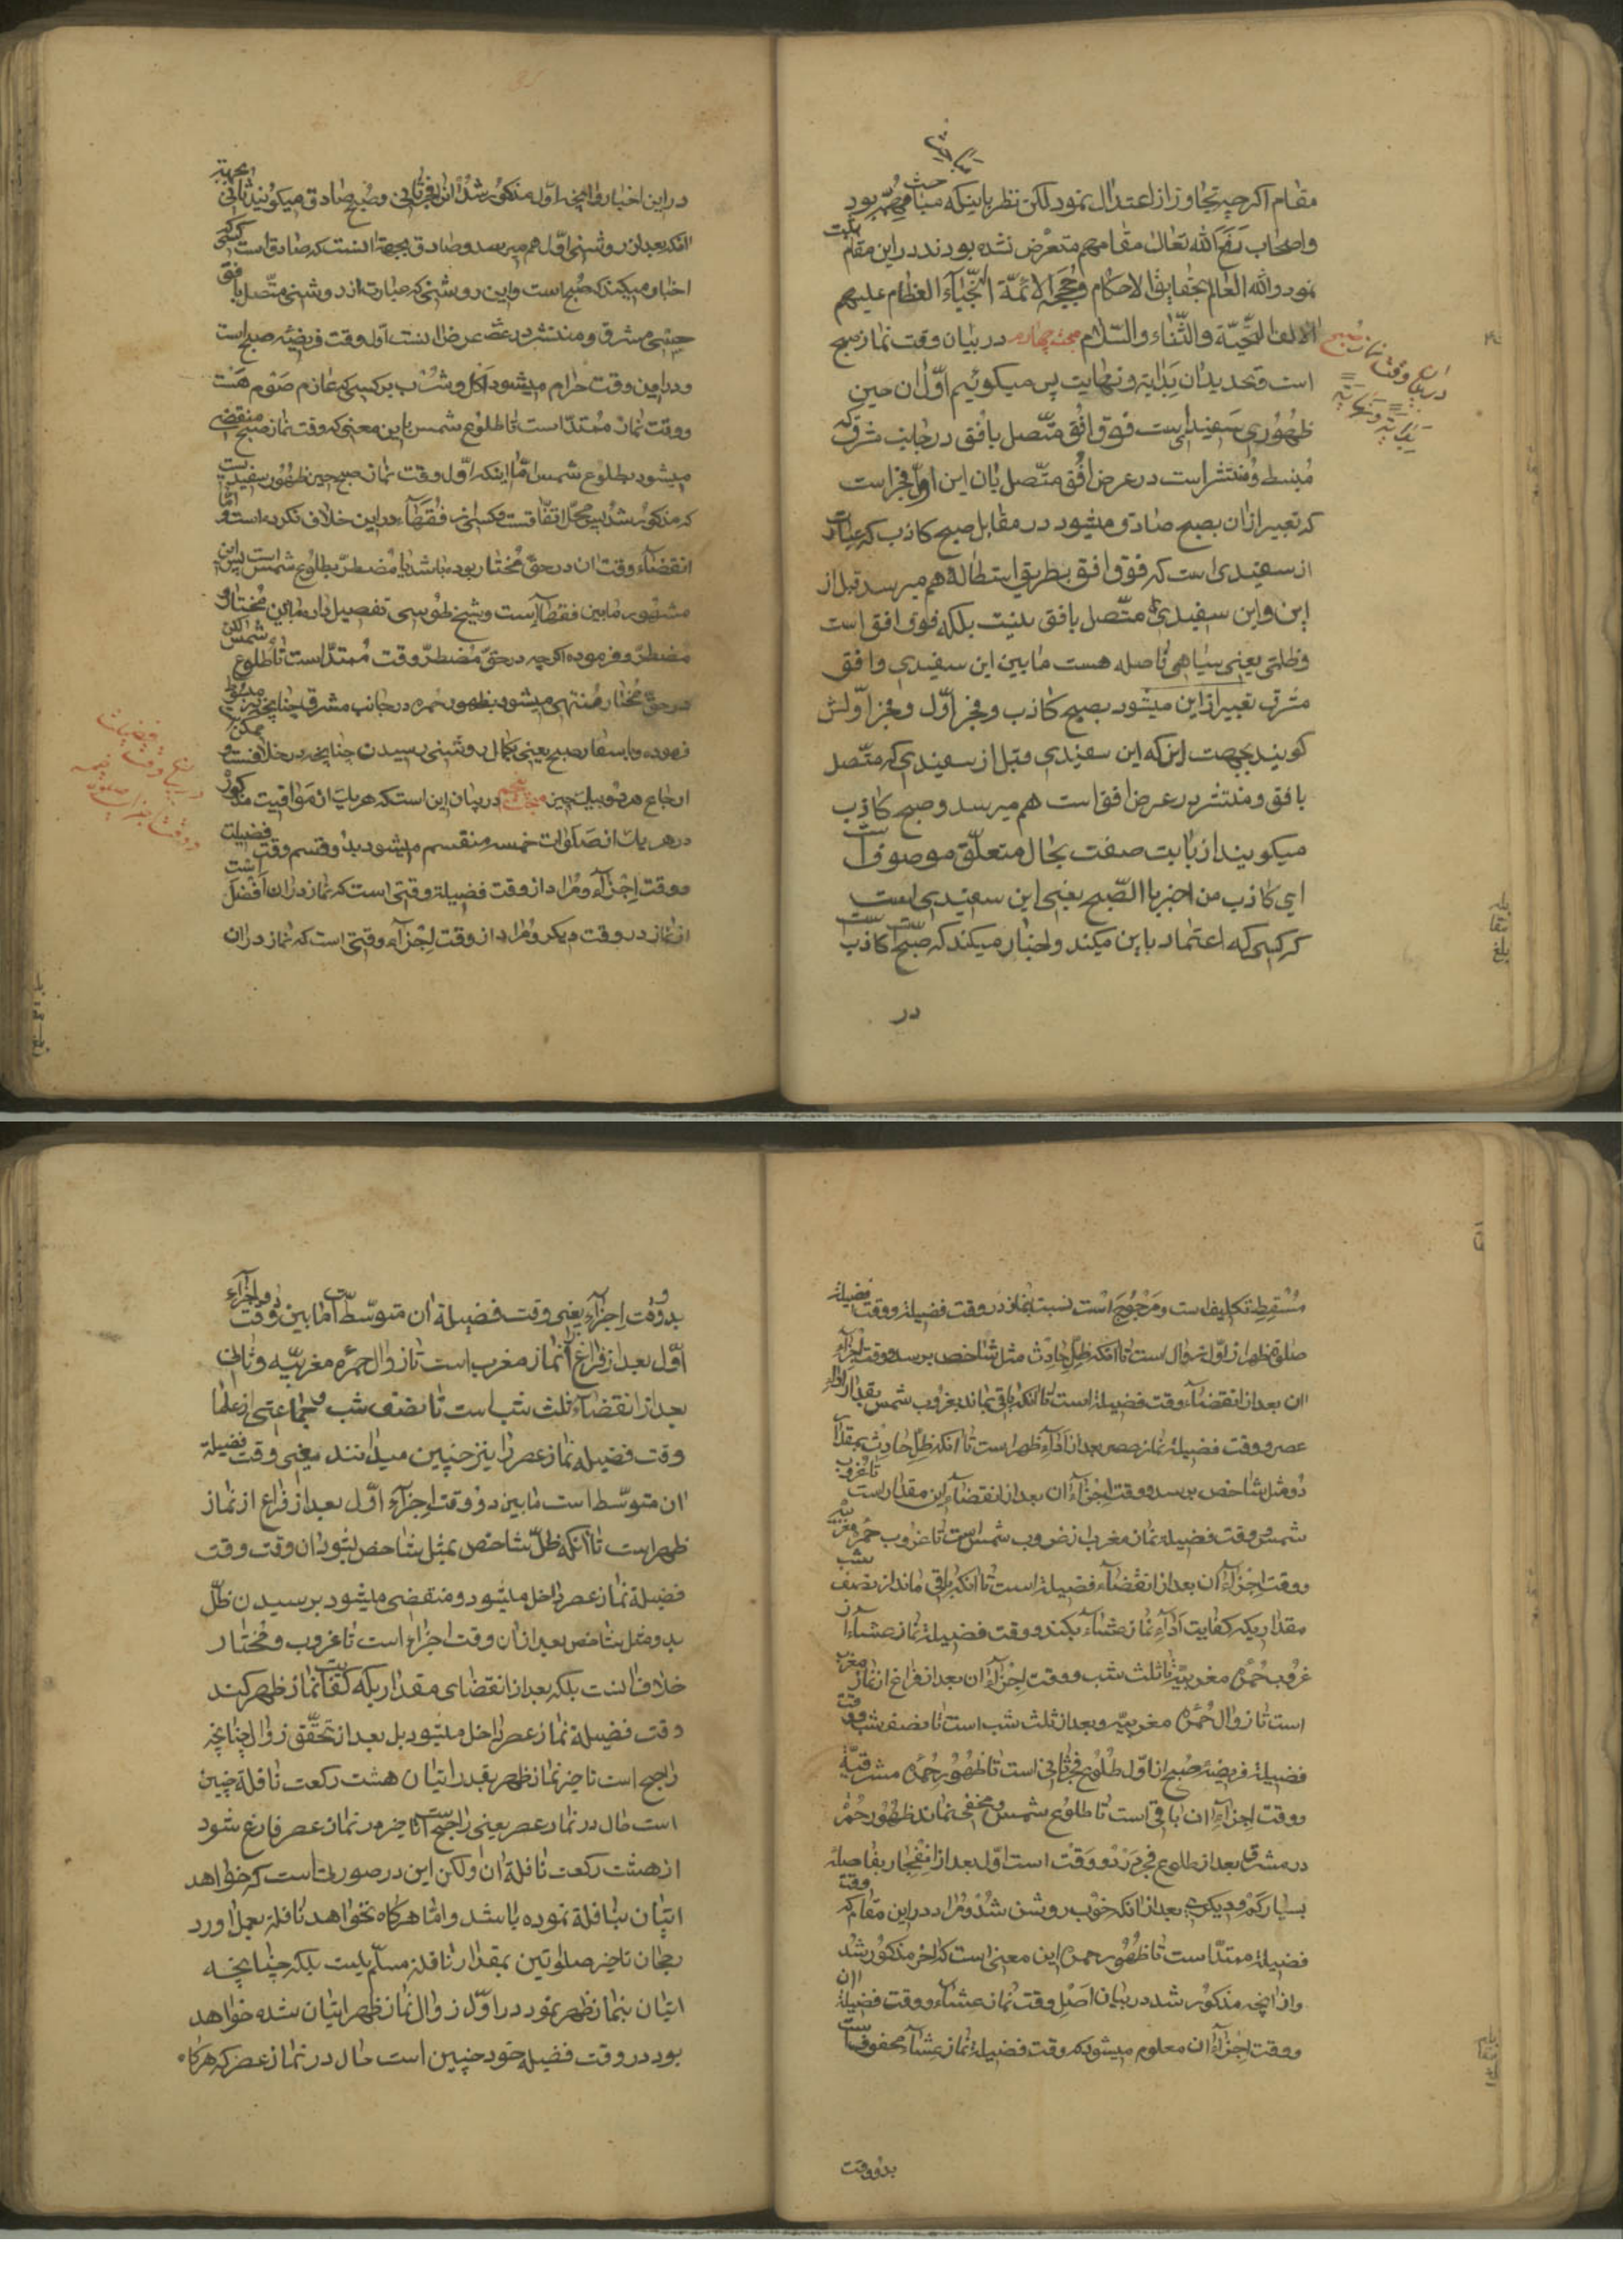 مقام اگرچه تجاوز از اعتدال نمود لکن نظر باینکه مبحث مهم بود
واصحاب رفع الله تعالی مقامهم متعرض نشده بودند در این مقام
نمود والله العالم بحقایق الاحکام وحججه الائمة النجباء العظام علیهم
الاف التحیة والثناء والسلام مبحث چهارم در بیان وقت نماز صبح
است وتحدید ان بدایة ونهایت پس میکوئیم اول ان حین
ظهوری سفیدی است فوق افق متصل بافق در جانب مشرق که
منبسط ومنتشر است در عرض افق متصل بان این اول فجر است
که تعبیر از ان بصبح صادق میشود در مقابل صبح کاذب که عبارت
از سفیدی است که فوق افق بطریق استطاله هم میرسد قبل از
این واین سفیدی متصل بافق نیست بلکه فوق افق است
وظلمتی یعنی سیاهی فاصله هست مابین این سفیدی وافق
مشرق تعبیر از این میشود بصبح کاذب وفجر اول وفجر اولش
کویند بجهت این که این سفیدی قبل از سفیدی که متصل
بافق ومنتشر در عرض افق است هم میرسد وصبح کاذب
میکویند از بابت صفت بحال متعلق موصوف است
ای کاذب من اخبر بالصبح یعنی این سفیدی است
که کسی که اعتماد باین میکند واخبار میکند که صبح است کاذب است
در
در بیان وقت نماز صبح
بدایة ونهایة
در این اخبار وانچه اول مذکور شد انرا فجر ثانی وصبح صادق میکویند ثانی بجهة
انکه بعد از روشنی اول هم میرسد وصادق بجهة انست که صادق است کسی که
اخبار میکند که صبح است واین روشنی که عبارت از روشنی متصل بافق
حسی مشرق ومنتشر در عرض انست اول وقت فریضه صبح است
ودر این وقت حرام میشود اکل وشرب بر کسی که عازم صوم هست
ووقت نماز ممتد است تا طلوع شمس باین معنی که وقت نماز صبح منقضی
میشود بطلوع شمس اما اینکه اول وقت نماز صبح حین ظهور سفیدیست
که مذکور شد پس محل اتفاقست وکسی از فقهاء در این خلاف نکرده است واما
انقضاء وقت ان در حق مختار بوده باشد یا مضطر بطلوع شمس است پس این
مشهور مابین فقهاء است وشیخ طوسی تفصیل داد مابین مختار و
مضطر وفرموده اکرچه در حق مضطر وقت ممتد است تا طلوع شمس لکن
در حق مختار منتهی میشود بظهور حمره در جانب مشرق چنانچه در مبسوط
فرموده وباسفار صبح یعنی بکمال روشنی رسیدن چنانچه در خلافست وممکن
ارجاع هر دو بیک چیز مبحث پنجم در بیان این است که هر یک از مواقیت مذکور
در هر یک از صلوات خمسه منقسم میشود بدو قسم وقت فضیلت
ووقت اجزاء ومراد از وقت فضیلة وقتی است که نماز در ان افضل است
از نماز در وقت دیکر ومراد از وقت اجزاء وقتی است که نماز در ان
مسقط تکلیف است ومرجوح است نسبت بنماز در وقت فضیلة ووقت فضیلة
صلوة ظهر از اول زوال است تا انکه ظل حادث مثل شاخص برسد ووقت اجزاء
ان بعد از انقضاء وقت فضیلة است تا انکه باقی بماند بغروب شمس بقدر اداء
عصر ووقت فضیلة نماز عصر بعد از اداء ظهر است تا انکه ظل حادث بمقدار
دو مثل شاخص برسد ووقت اجزاء ان بعد از انقضاء این مقدار است تا غروب
شمس ووقت فضیلة نماز مغرب از غروب شمس است تا غروب حمره مغربیه
ووقت اجزاء ان بعد از انقضاء فضیلة است تا انکه باقی ماند از نصف شب
مقداریکه کفایت اداء نماز عشاء بکند ووقت فضیلة نماز عشاء از
غروب حمره مغربیه تا ثلث شب ووقت اجزاء ان بعد از فراغ از نماز مغرب
است تا زوال حمره مغربیه وبعد از ثلث شب است تا نصف شب ووقت
فضیلة فریضه صبح از اول طلوع فجر ثانی است تا ظهور حمره مشرقیه
ووقت اجزاء ان باقی است تا طلوع شمس ومخفی نماند ظهور حمره
در مشرق بعد از طلوع فجر در دو وقت است اول بعد از انفجار بفاصله
بسیار کم ودیکری بعد از انکه خوب روشن شد ومراد در این مقام که وقت
فضیلة ممتد است تا ظهور حمره این معنی است که اخر مذکور شد
واز انچه مذکور شد در بیان اصل وقت نماز عشاء ووقت فضیلة ان
ووقت اجزاء ان معلوم میشود که وقت فضیلة نماز عشاء محفوف است
بدو وقت
بدو وقت اجزاء یعنی وقت فضیلة ان متوسط است مابین دو وقت اجزاء
اول بعد از فراغ از نماز مغرب است تا زوال حمره مغربیه وثانی
بعد از انقضاء ثلث شب است تا نصف شب وجماعتی از علما
وقت فضیلة نماز عصر را نیز چنین میدانند یعنی وقت فضیلة
ان متوسط است مابین دو وقت اجزاء اول بعد از فراغ از نماز
ظهر است تا انکه ظل شاخص بمثل شاخص بشود ان وقت وقت
فضیلة نماز عصر داخل میشود ومنقضی میشود برسیدن ظل
بدو مثل شاخص بعد از ان وقت اجزاء است تا غروب ومختار
خلاف انست بلکه بعد از انقضای مقداریکه کفایت نماز ظهر کند
وقت فضیلة نماز عصر داخل میشود بل بعد از تحقق زوال چنانچه
راجح است تاخیر نماز ظهر بقدر اتیان هشت رکعت نافله چنین
است حال در نماز عصر یعنی راجح است تاخیر در نماز عصر فارغ شود
از هشت رکعت نافلة ان ولکن این در صورتی است که خواهد
اتیان بنافلة نموده باشد واما هرکاه نخواهد نافلة بعمل اورد
رجحان تاخیر صلوتین بمقدار نافلة مسلم نیست بلکه چنانچه
اتیان بنماز ظهر نمود در اول زوال نماز ظهر اتیان شده خواهد
بود در وقت فضیلة خود چنین است حال در نماز عصر که هرکاه